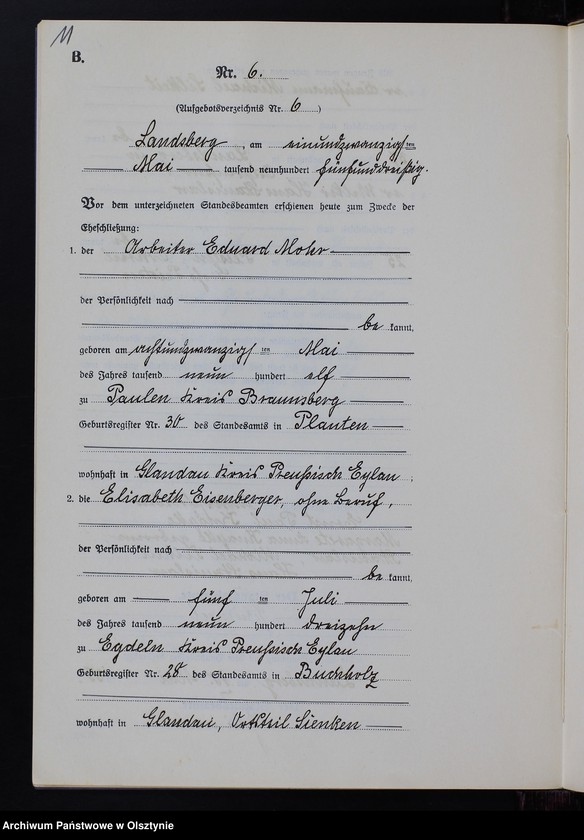 11
B.
Nr. 6.
(Aufgebotsverzeichnis Nr. 6)
Landsberg, am einundzwanzigsten
Mai tausend neunhundert fünfunddreißig.
Vor dem unterzeichneten Standesbeamten erschienen heute zum Zwecke der
Eheschließung:
1. der Arbeiter Eduard Mohr
der Persönlichkeit nach
be kannt,
geboren am achtundzwanzigsten Mai
des Jahres tausend neun hundert elf
zu Paulen Kreis Braunsberg
Geburtsregister Nr. 30 des Standesamts in Plauten
wohnhaft in Glandau Kreis Preußisch Eylau.
2. die Elisabeth Eisenberger, ohne Beruf,
der Persönlichkeit nach
be kannt,
geboren am fünf ten Juli
des Jahres tausend neun hundert dreizehn
zu Egdeln Kreis Preußisch Eylau
Geburtsregister Nr. 28 des Standesamts in Buchholz
wohnhaft in Glandau, Ortsteil Sienken
Archiwum Państwowe w Olsztynie
www.szukajwarchiwach.gov.pl